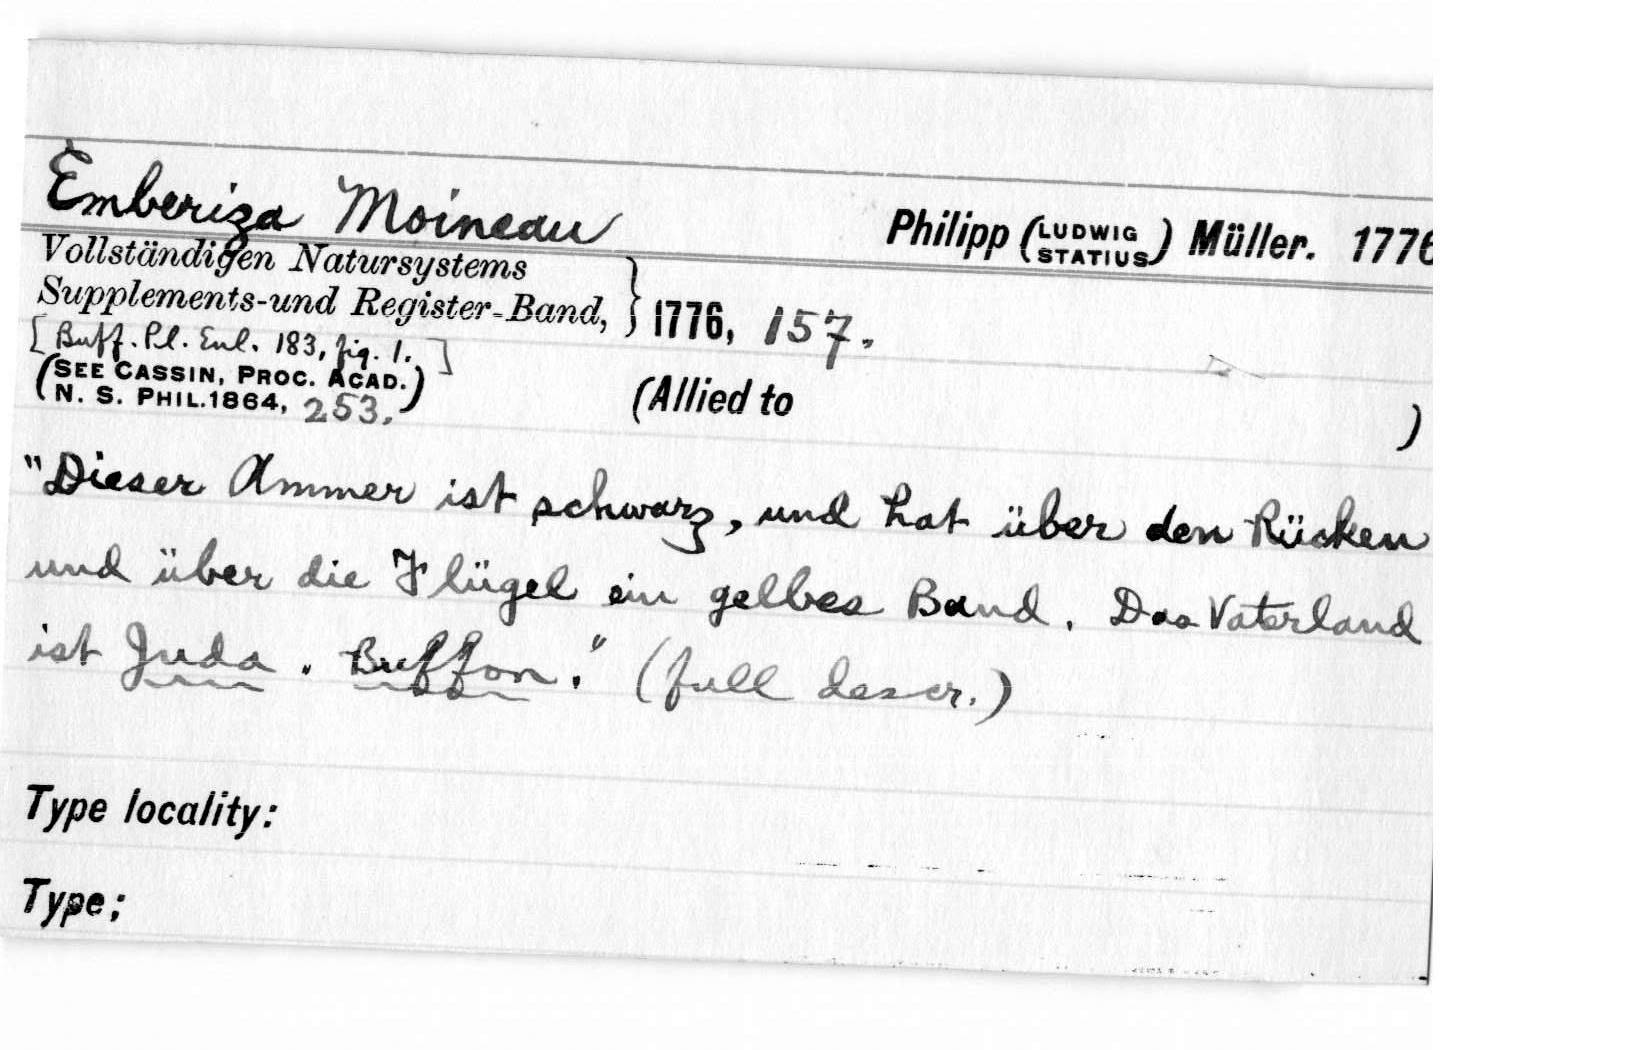 Emberiza Moineau
Philipp (LUDWIG STATIUS) Müller. 1776
Vollständigen Natursystems
Supplements-und Register-Band, } 1776, 157.
[Buff. Pl. Enl. 183, fig. 1.]
(SEE CASSIN, PROC. ACAD.
N. S. PHIL. 1864, 253.)
(Allied to )
"Dieser Ammer ist schwarz, und hat über den Rücken
und über die Flügel ein gelbes Band. Das Vaterland
ist Juda. Buffon." (full descr.)
Type locality:
Type;